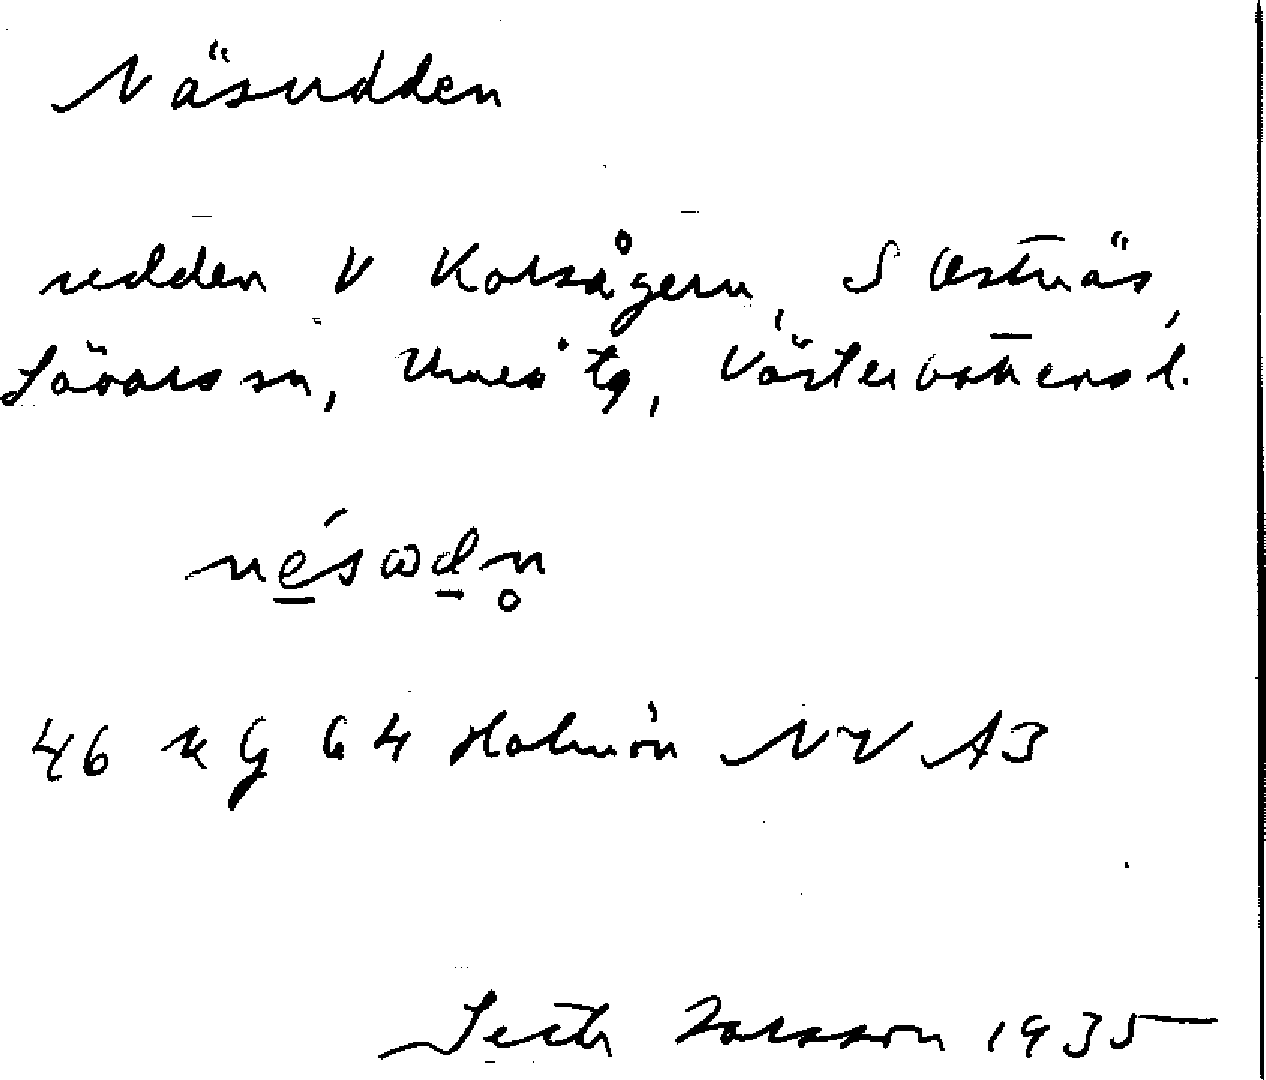 Näsudden
udden V Korsågern, S Östnäs,
Sävars sn, Umeå tg, Västerbottens l.
nésωdn̥
46 x G 64 Holmön NV A3
Seth Larsson 1935